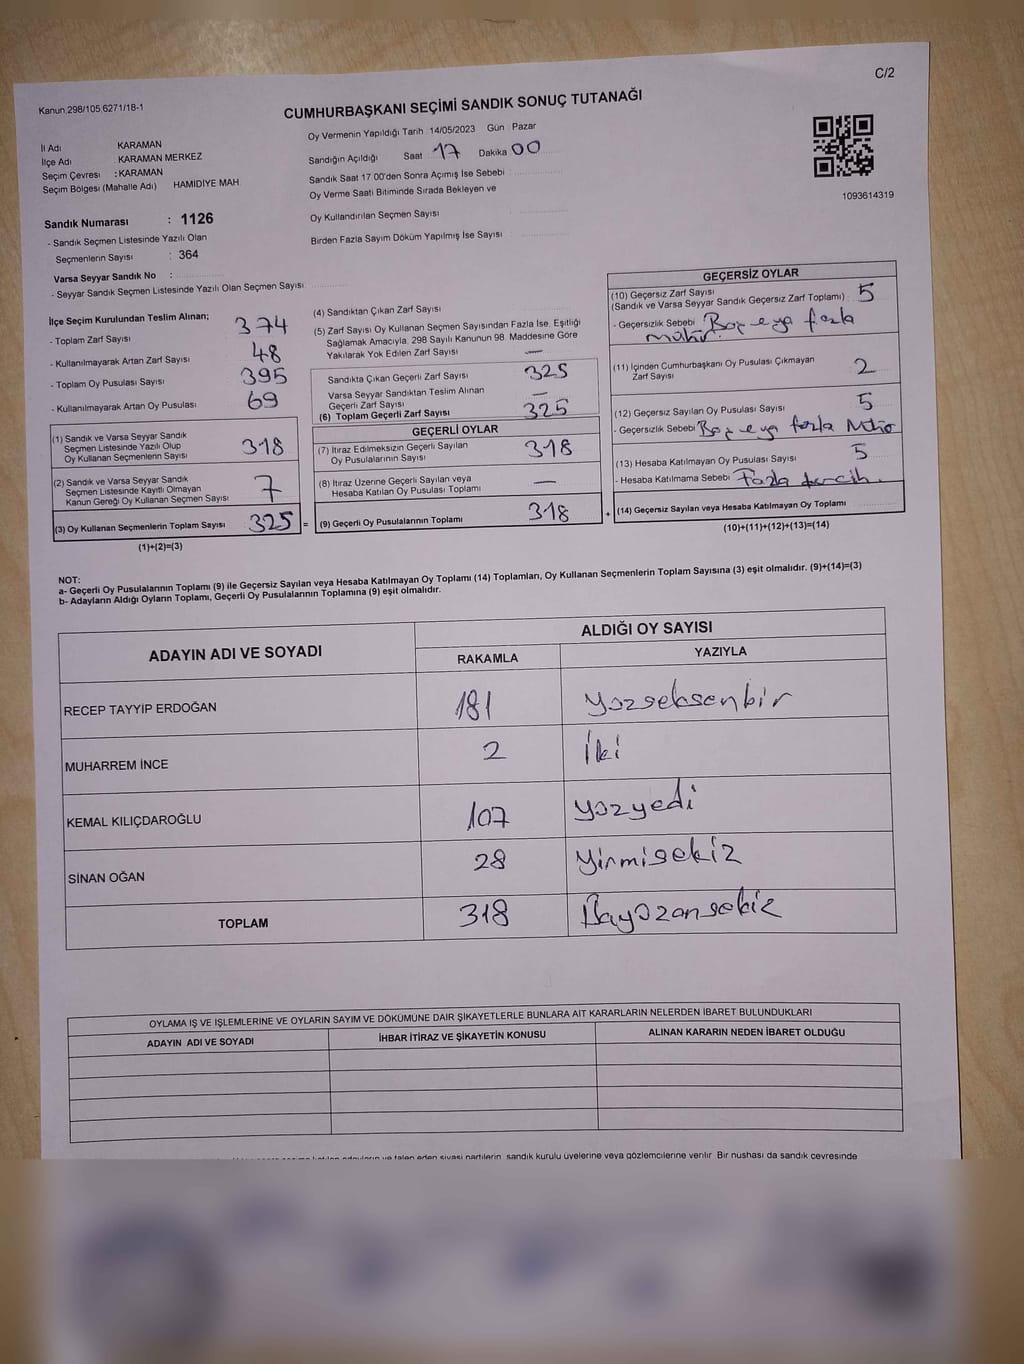 C/2
Kanun 298/105,6271/18-1
CUMHURBAŞKANI SEÇİMİ SANDIK SONUÇ TUTANAĞI
İl Adı KARAMAN
İlçe Adı : KARAMAN MERKEZ
Seçim Çevresi : KARAMAN
Seçim Bölgesi (Mahalle Adı) HAMİDİYE MAH.
Sandık Numarası : 1126
- Sandık Seçmen Listesinde Yazılı Olan
Seçmenlerin Sayısı : 364
Varsa Seyyar Sandık No :
- Seyyar Sandık Seçmen Listesinde Yazılı Olan Seçmen Sayısı
Oy Vermenin Yapıldığı Tarih 14/05/2023 Gün : Pazar
Sandığın Açıldığı Saat 17 Dakika 00
Sandık Saat 17.00'den Sonra Açımış İse Sebebi
Oy Verme Saati Bitiminde Sırada Bekleyen ve
Oy Kullandırılan Seçmen Sayısı
Birden Fazla Sayım Döküm Yapılmış İse Sayısı
1093614319
İlçe Seçim Kurulundan Teslim Alınan;
- Toplam Zarf Sayısı 374
- Kullanılmayarak Artan Zarf Sayısı 48
- Toplam Oy Pusulası Sayısı 395
- Kullanılmayarak Artan Oy Pusulası 69
(1) Sandık ve Varsa Seyyar Sandık
Seçmen Listesinde Yazılı Olup
Oy Kullanan Seçmenlerin Sayısı 318
(2) Sandık ve Varsa Seyyar Sandık
Seçmen Listesinde Kayıtlı Olmayan
Kanun Gereği Oy Kullanan Seçmen Sayısı 7
(3) Oy Kullanan Seçmenlerin Toplam Sayısı 325 =
(1)+(2)=(3)
(4) Sandıktan Çıkan Zarf Sayısı
(5) Zarf Sayısı Oy Kullanan Seçmen Sayısından Fazla İse, Eşitliği
Sağlamak Amacıyla, 298 Sayılı Kanunun 98. Maddesine Göre
Yakılarak Yok Edilen Zarf Sayısı —
Sandıkta Çıkan Geçerli Zarf Sayısı 325
Varsa Seyyar Sandıktan Teslim Alınan
Geçerli Zarf Sayısı —
(6) Toplam Geçerli Zarf Sayısı 325
GEÇERLİ OYLAR
(7) İtiraz Edilmeksizin Geçerli Sayılan
Oy Pusulalarının Sayısı 318
(8) İtiraz Üzerine Geçerli Sayılan veya
Hesaba Katılan Oy Pusulası Toplamı —
(9) Geçerli Oy Pusulalarının Toplamı 318 +
GEÇERSİZ OYLAR
(10) Geçersiz Zarf Sayısı
(Sandık ve Varsa Seyyar Sandık Geçersiz Zarf Toplamı) : 5
- Geçersizlik Sebebi Boş veya fazla
mühür.
(11) İçinden Cumhurbaşkanı Oy Pusulası Çıkmayan
Zarf Sayısı 2
(12) Geçersiz Sayılan Oy Pusulası Sayısı 5
- Geçersizlik Sebebi Boş veya fazla
(13) Hesaba Katılmayan Oy Pusulası Sayısı 5
- Hesaba Katılmama Sebebi Fazla tercih.
(14) Geçersiz Sayılan veya Hesaba Katılmayan Oy Toplamı
(10)+(11)+(12)+(13)=(14)
NOT:
a- Geçerli Oy Pusulalarının Toplamı (9) ile Geçersiz Sayılan veya Hesaba Katılmayan Oy Toplamı (14) Toplamları, Oy Kullanan Seçmenlerin Toplam Sayısına (3) eşit olmalıdır. (9)+(14)=(3)
b- Adayların Aldığı Oyların Toplamı, Geçerli Oy Pusulalarının Toplamına (9) eşit olmalıdır.
ADAYIN ADI VE SOYADI ALDIĞI OY SAYISI
RAKAMLA YAZIYLA
RECEP TAYYİP ERDOĞAN 181 Yüzseksenbir
MUHARREM İNCE 2 İki
KEMAL KILIÇDAROĞLU 107 Yüzyedi
SİNAN OĞAN 28 Yirmisekiz
TOPLAM 318
OYLAMA İŞ VE İŞLEMLERİNE VE OYLARIN SAYIM VE DÖKÜMÜNE DAİR ŞİKAYETLERLE BUNLARA AİT KARARLARIN NELERDEN İBARET BULUNDUKLARI
ADAYIN ADI VE SOYADI İHBAR İTİRAZ VE ŞİKAYETİN KONUSU ALINAN KARARIN NEDEN İBARET OLDUĞU
sandık kurulu üyelerine veya gözlemcilerine verilir. Bir nüshası da sandık çevresinde